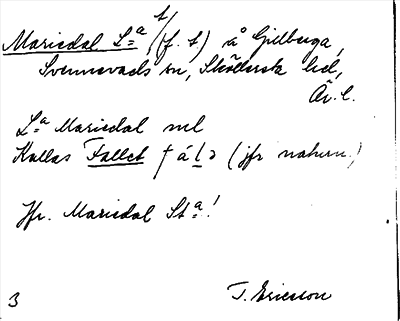 t/
Mariedal Lª (f. t) å Gillberga,
Svennevads sn, Sköllersta hd,
Ör. l.
Lª Mariedal ml
Kallas Fallet (jfr naturn.)
Jfr. Mariedal Stª!
3 T. Ericsson